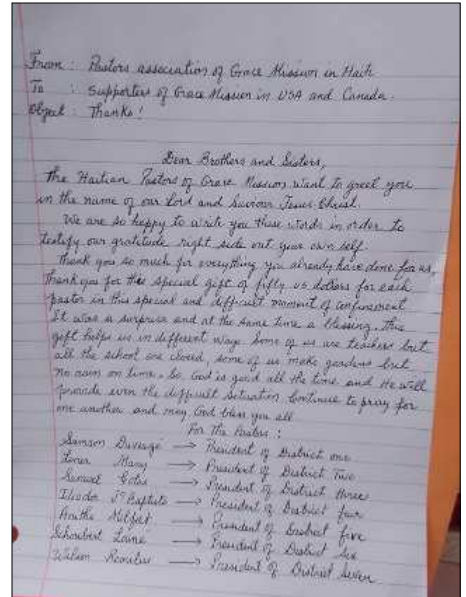 From : Pastors association of Grace Mission in Haiti
To : Supporters of Grace Mission in USA and Canada.
Object : Thanks!
Dear Brothers and Sisters,
The Haitian Pastors of Grace Mission want to greet you
in the name of our Lord and Saviour Jesus Christ.
We are so happy to write you these words in order to
testify our gratitude right side out your own self.
Thank you so much for everything you already have done for us,
Thank you for the special gift of fifty us dollars for each
pastor in this special and difficult moment of confinement
It was a surprise and at the same time a blessing. This
gift helps us in different ways. Some of us are teachers but
all the school are closed, some of us make gardens but
no rain on time. So, God is good all the time and He will
provide even the difficult situation Continue to pray for
one another and may God bless you all
For the Pastors :
Samson → President of District one
→ President of District Two
Samuel → President of District three
Iliodor Jn Baptiste → President of District four
→ President of District five
Schoubert Laine → President of District Six
Wilson → President of District Seven